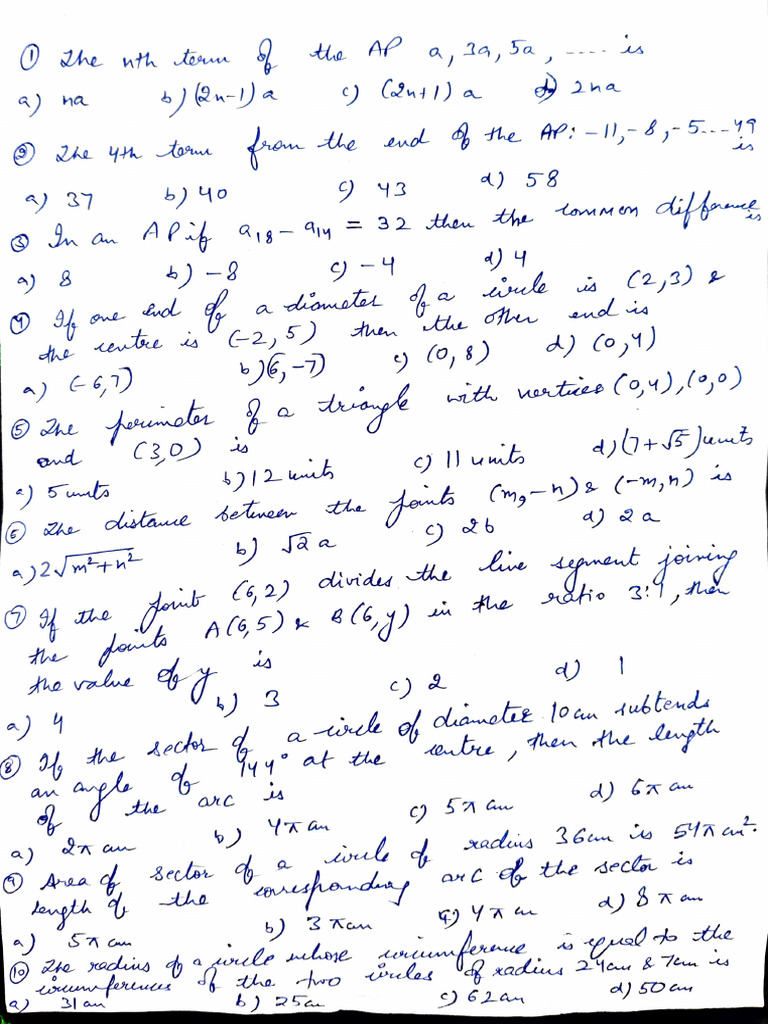 ① The nth term of the AP a, 3a, 5a, ..... is
a) na b) (2n-1) a c) (2n+1) a d) 2na
② The 4th term from the end of the AP: -11, -8, -5...49 is
a) 37 b) 40 c) 43 d) 58
③ In an AP if a₁₈ - a₁₄ = 32 then the common difference is
a) 8 b) -8 c) -4 d) 4
④ If one end of a diameter of a circle is (2,3) &
the centre is (-2, 5) then the other end is
a) (-6,7) b) (6,-7) c) (0, 8) d) (0,4)
⑤ The perimeter of a triangle with vertices (0,4), (0,0)
and (3,0) is
a) 5 units b) 12 units c) 11 units d) (7+√5) units
⑥ The distance between the points (m, -n) & (-m, n) is
a) 2√m²+n² b) √2 a c) 2b d) 2a
⑦ If the point (6,2) divides the line segment joining
the points A(6,5) & B(6,y) in the ratio 3:1, then
the value of y is
a) 4 b) 3 c) 2 d) 1
⑧ If the sector of a circle of diameter 10cm subtends
an angle of 144° at the centre, then the length
of the arc is
a) 2π cm b) 4π cm c) 5π cm d) 6π cm
⑨ Area of sector of a circle of radius 36cm is 54π cm².
Length of the corresponding arc of the sector is
a) 5π cm b) 3π cm c) 4π cm d) 8π cm
⑩ The radius of a circle whose circumference is equal to the
circumferences of the two circles of radius 24cm & 7cm is
a) 31cm b) 25cm c) 62cm d) 50cm